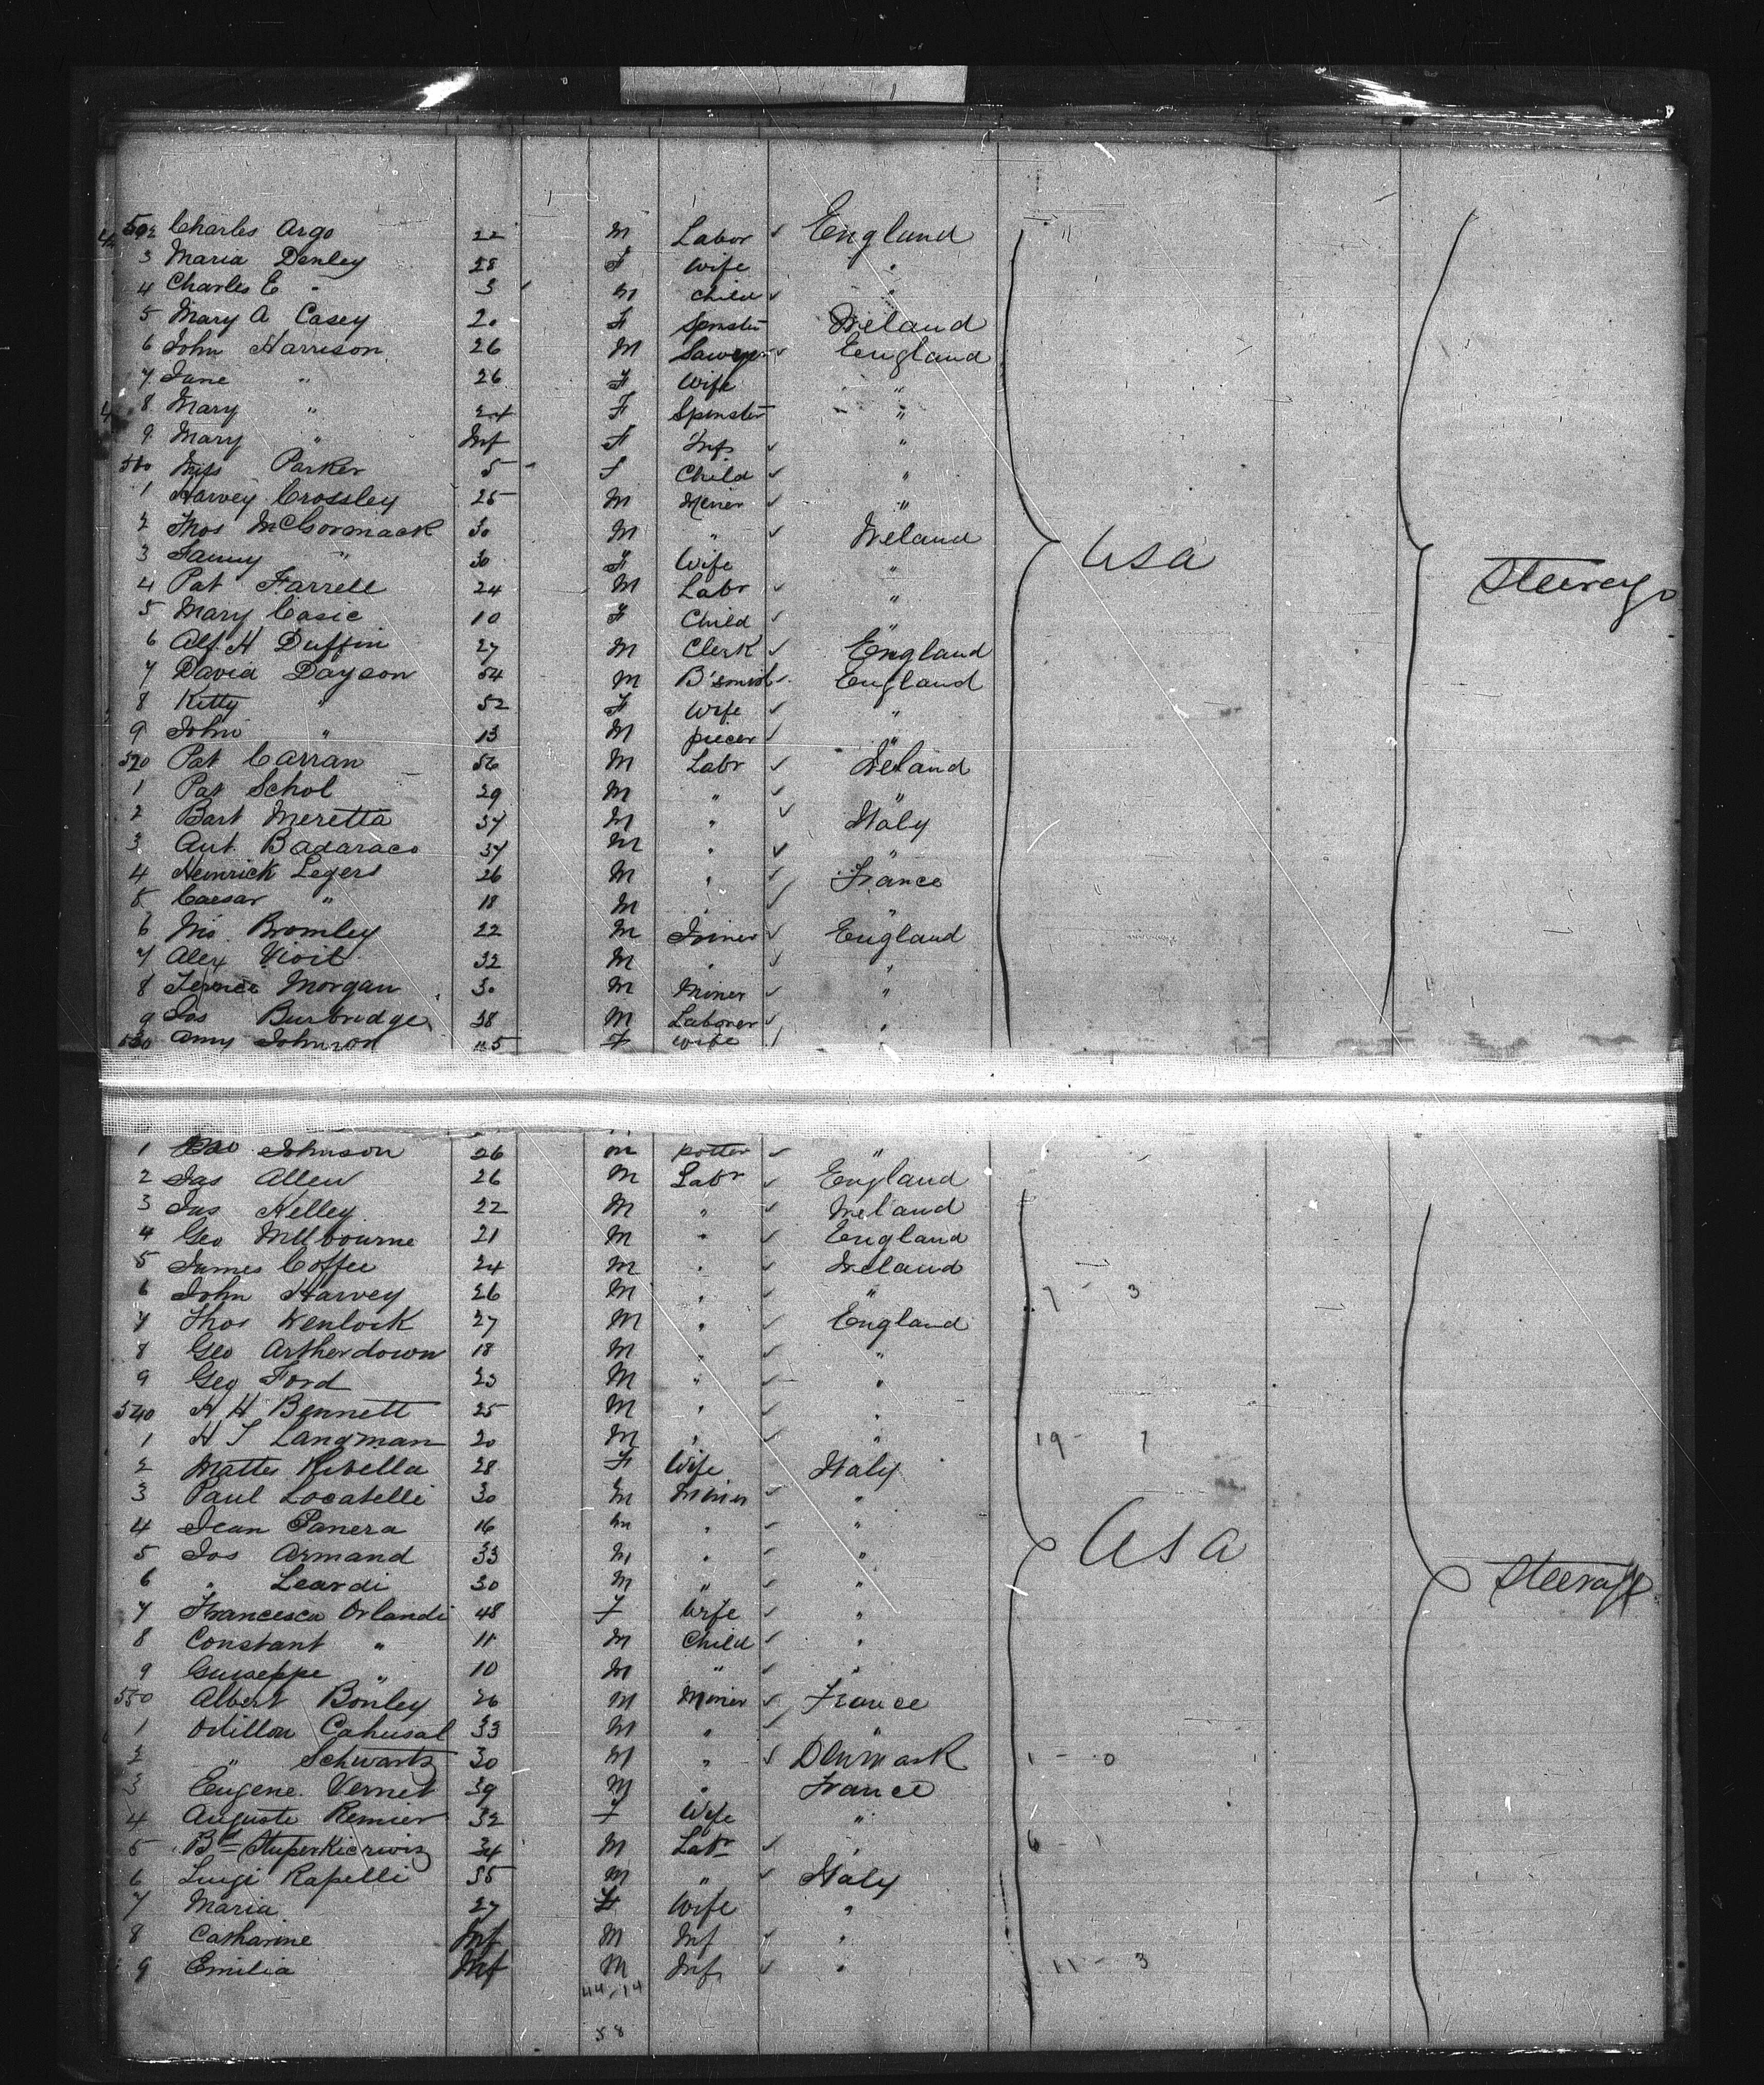 502 Charles Argo 22 M Labor ✓ England
3 Maria Denley 28 F Wife "
4 Charles E " 3 M Child ✓ "
5 Mary A Casey 20 F Spinster Ireland
6 John Harrison 26 M Sawyer ✓ England
7 Jane " 26 F Wife "
8 Mary " 24 F Spinster "
9 Mary " Inf F Inf ✓ "
510 Miss Parker 5 F Child ✓ "
1 Harvey Crossley 25 M Miner ✓ "
2 Thos McCormack 30 M " ✓ Ireland
3 Fanny " 30 F Wife " USA
4 Pat Farrell 24 M Labr ✓ " Steerage
5 Mary Casic 10 F Child ✓ "
6 Alf. H Duffin 27 M Clerk ✓ England
7 David Dayson 54 M B'smith ✓ England
8 Kitty " 52 F Wife ✓ "
9 John " 13 M piecer ✓ "
520 Pat Carran 56 M Labr ✓ Ireland
1 Pat Schol 29 M " ✓ "
2 Bart Meretta 37 M " ✓ Italy
3 Ant. Badaraco 37 M " ✓ "
4 Heinrick Legers 26 M " ✓ France
5 Caesar " 18 M " ✓ "
6 Bromley 22 M Joiner ✓ England
7 Alex Vivit 32 M " ✓ "
8 Morgan 30 M Miner ✓ "
9 Jos Burbridge 38 M Laborer ✓ "
530 Amy Johnson 45 F Wife "
1 Johnson 26 M potter ✓ "
2 Jas Allen 26 M Labr ✓ England
3 Jas Kelley 22 M " ✓ Ireland
4 Geo Milbourne 21 M " ✓ England
5 James Coffee 24 M " ✓ Ireland
6 John Harvey 26 M " ✓ " 7 - 3
7 Thos Wenlock 27 M " ✓ England
8 Geo Artherdown 18 M " ✓ "
9 Geo Ford 23 M " ✓ "
540 H H Bennett 25 M " ✓ "
1 H J Langman 20 M " ✓ " 19 - 7
2 Mattes Rivella 28 F Wife Italy
3 Paul Locatelli 30 M Miner ✓ "
4 Jean Panera 16 M " ✓ " USA
5 Jos Armand 33 M " ✓ "
6 " Leardi 30 M " ✓ " Steerage
7 Francesca Orlandi 48 F Wife ✓ "
8 Constant " 11 M Child ✓ "
9 Guiseppe " 10 M " ✓ "
550 Albert Bonley 26 M Miner ✓ France
1 Odillon Cahusal 33 M " ✓ "
2 " Schwartz 30 M " ✓ Denmark 1 - 0
3 Eugene Vernet 39 M " France
4 Auguste Remier 32 F Wife "
5 34 M Labr ✓ " 6 - 1
6 Luigi Rapelli 35 M " ✓ Italy
7 Maria 27 F Wife "
8 Catharine Inf M Inf ✓ "
9 Emilia Inf M Inf ✓ " 11 - 3
44-14
58